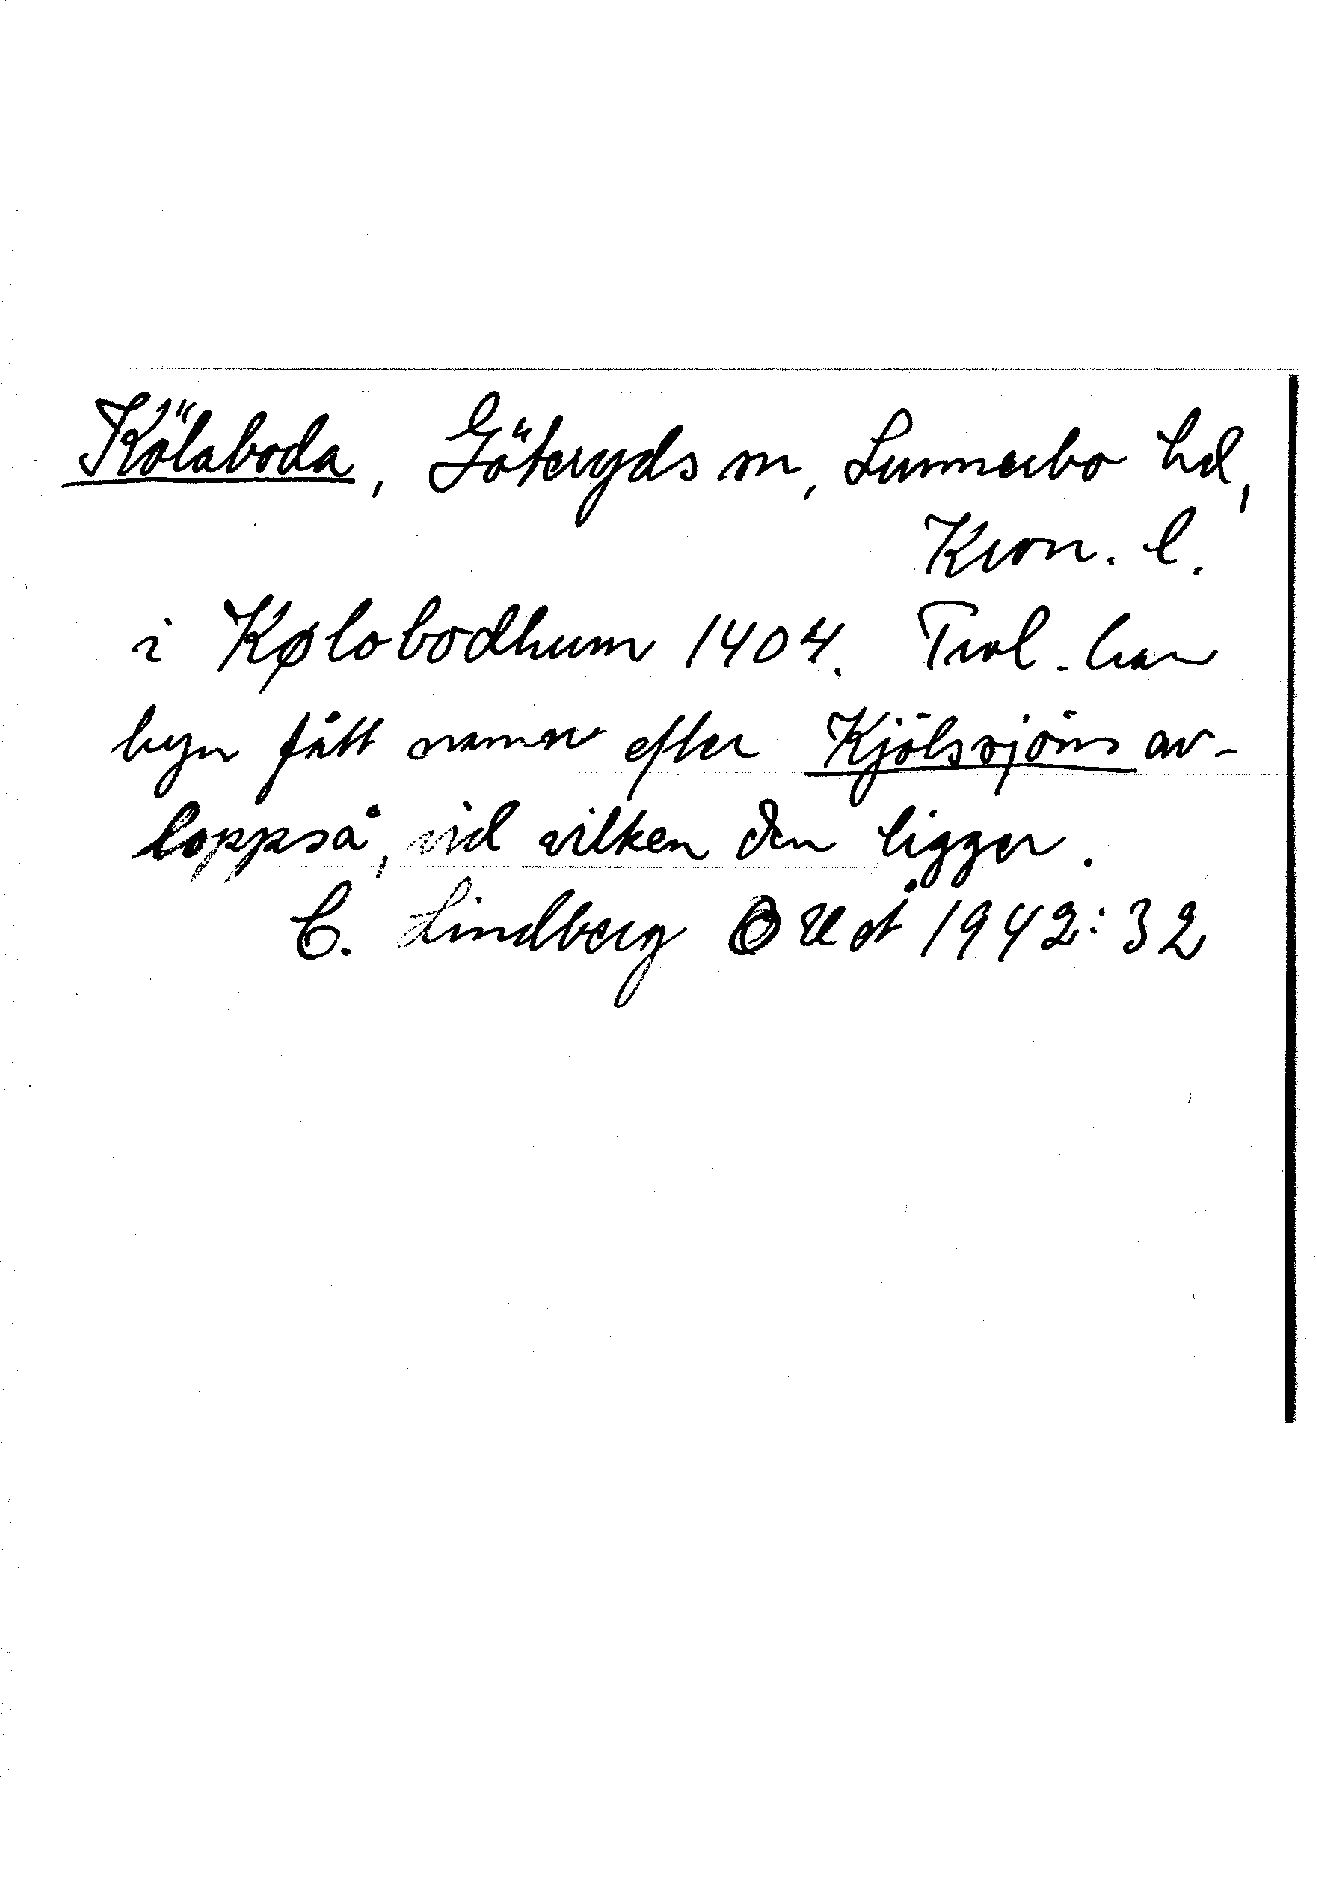 Kölaboda, Göteryds sn, Sunnerbo hd,
Kron. l.
i Kølobodhum 1404. Trol. har
byn fått namn efter Kjölssjöns av-
loppså, vid vilken den ligger.
C. Lindberg OUÅ 1942:32